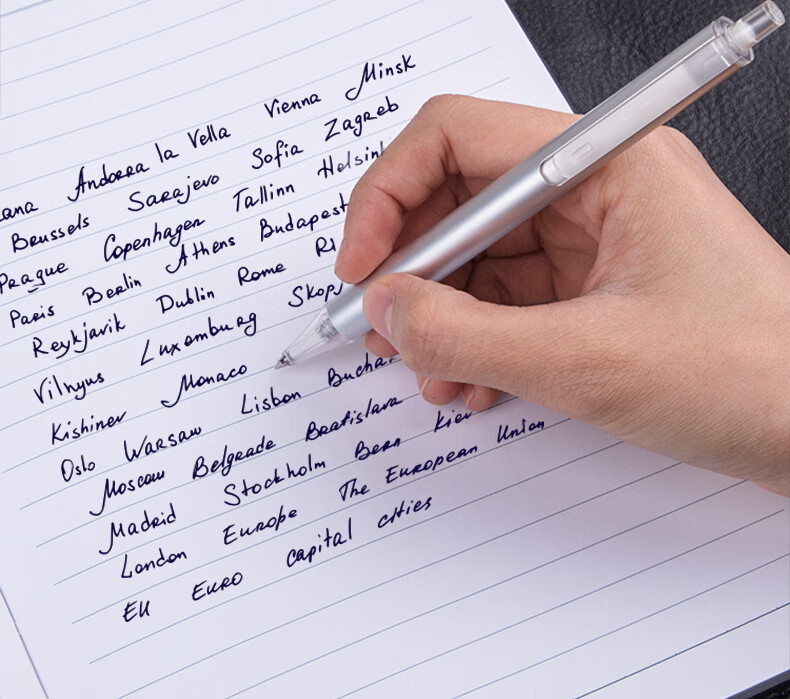 ana Andorra la Vella Vienna Minsk
Brussels Sarajevo Sofia Zagreb
Prague Copenhagen Tallinn Helsin
Paris Berlin Athens Budapest
Reykjavik Dublin Rome Ri
Vilnyus Luxemburg Skop
Kishinev Monaco
Oslo Warsaw Lisbon Bucha
Moscow Belgrade Bratislava
Madrid Stockholm Bern Kiev
London Europe The European Union
EU Euro capital cities